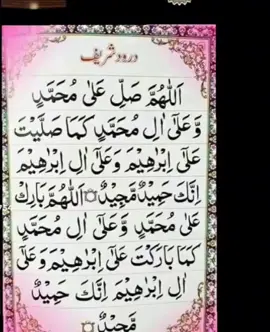 درود شریف
اَللّٰهُمَّ صَلِّ عَلٰی مُحَمَّدٍ
وَّعَلٰٓی اٰلِ مُحَمَّدٍ كَمَا صَلَّيْتَ
عَلٰٓی اِبْرٰهِيْمَ وَعَلٰٓی اٰلِ اِبْرٰهِيْمَ
اِنَّكَ حَمِيْدٌ مَّجِيْدٌ۝اَللّٰهُمَّ بَارِكْ
عَلٰی مُحَمَّدٍ وَّعَلٰٓی اٰلِ مُحَمَّدٍ
كَمَا بَارَكْتَ عَلٰٓی اِبْرٰهِيْمَ وَعَلٰٓی
اٰلِ اِبْرٰهِيْمَ اِنَّكَ حَمِيْدٌ
مَّجِيْدٌ۝